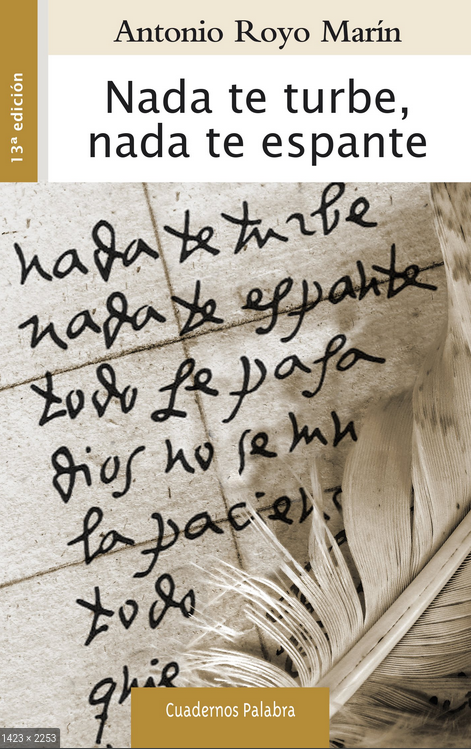 Antonio Royo Marín
13ª edición
Nada te turbe,
nada te espante
nada te turbe
nada te espante
todo se pasa
dios no se mu
la pacien
todo
quie
Cuadernos Palabra
1423 × 2253